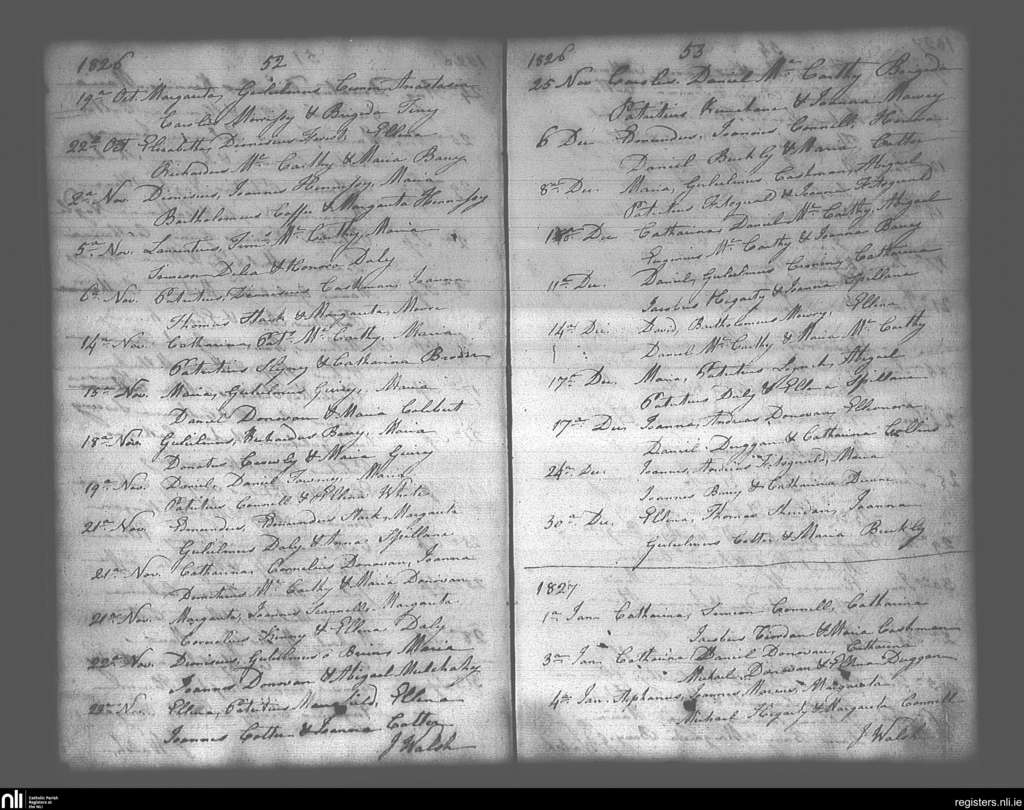 1826 52
19a Oct Margareta, Gulielmus Anastasia
Carolus Morrissy & Brigida
22a Oct Elisabetha, Dionisius Ellena
Richardus Mc Carthy & Maria Barry
2a Nov Dionisius, Joannes Hennessy, Maria
Bartholomeus & Margareta Hennessy
5a Nov. Laurentius, Mc Carthy, Maria
& Honora Daly
6a Nov. Patritius, Dionisius Cashman, Joanna
Thomas Stack & Margareta
14a Nov. Catharina, Mc Carthy, Maria
Patritius & Catharina
15a Nov. Maria, Gulielmus Maria
Daniel Donovan & Maria Colbert
18a Nov. Gulielmus, Richardus Barry, Maria
Donatus & Maria
19a Nov. Daniel, Daniel Maria
Patritius Connell & Ellena White
21a Nov. Stack, Margareta
Gulielmus Daly & Spillane
21a Nov. Catharina, Cornelius Donovan, Joanna
Demetrius Mc Carthy & Maria Donovan
21a Nov. Margareta, Joannes Scannell, Margareta
Cornelius & Ellena Daly
22a Nov. Dionisius, Gulielmus o Brien, Maria
Joannes Donovan & Abigail Mulchahy
22a Nov. Ellena, Patritius Ellena
Joannes Cotter & Joanna Cotter
J Walsh
1826 53
25 Nov Carolus Daniel Mc Carthy Brigida
Patritius & Joanna
6 Dec Connell
Daniel Buckly & Maria Cotter
8a Dec. Maria, Gulielmus Cashman, Abigail
Patritius Fitzgerald & Joanna Fitzgerald
Dec Catharina, Daniel Mc Carthy, Abigail
Eugenius Mc Carthy & Joanna Barry
11a Dec. Daniel, Gulielmus Catharina
Jacobus Hegarty & Joanna Spillane
14a Dec David Bartholomeus Ellena
Daniel Mc Carthy & Maria Mc Carthy
17a Dec Maria, Patritius Abigail
Patritius Daly & Ellena Spillane
17a Dec Joanna, Andreas Donovan, Ellenora
Daniel Duggan & Catharina Collins
24a Dec. Joannes, Fitzgerald, Maria
Joannes Barry & Catharina
30a Dec. Ellena, Thomas Sheridan, Joanna
Gulielmus Cotter & Maria Buckly
1827
1a Jan Catharina, Simeon Connell, Catharina
Jacobus & Maria Cashman
3a Jan, Catharina Daniel Donovan, Catharina
Michael Donovan & Ellena Duggan
4a Jan. Joannes Margareta
Michael Hegarty & Margareta Connell
J Walsh
nli Catholic Parish
Registers at
the NLI
registers.nli.ie